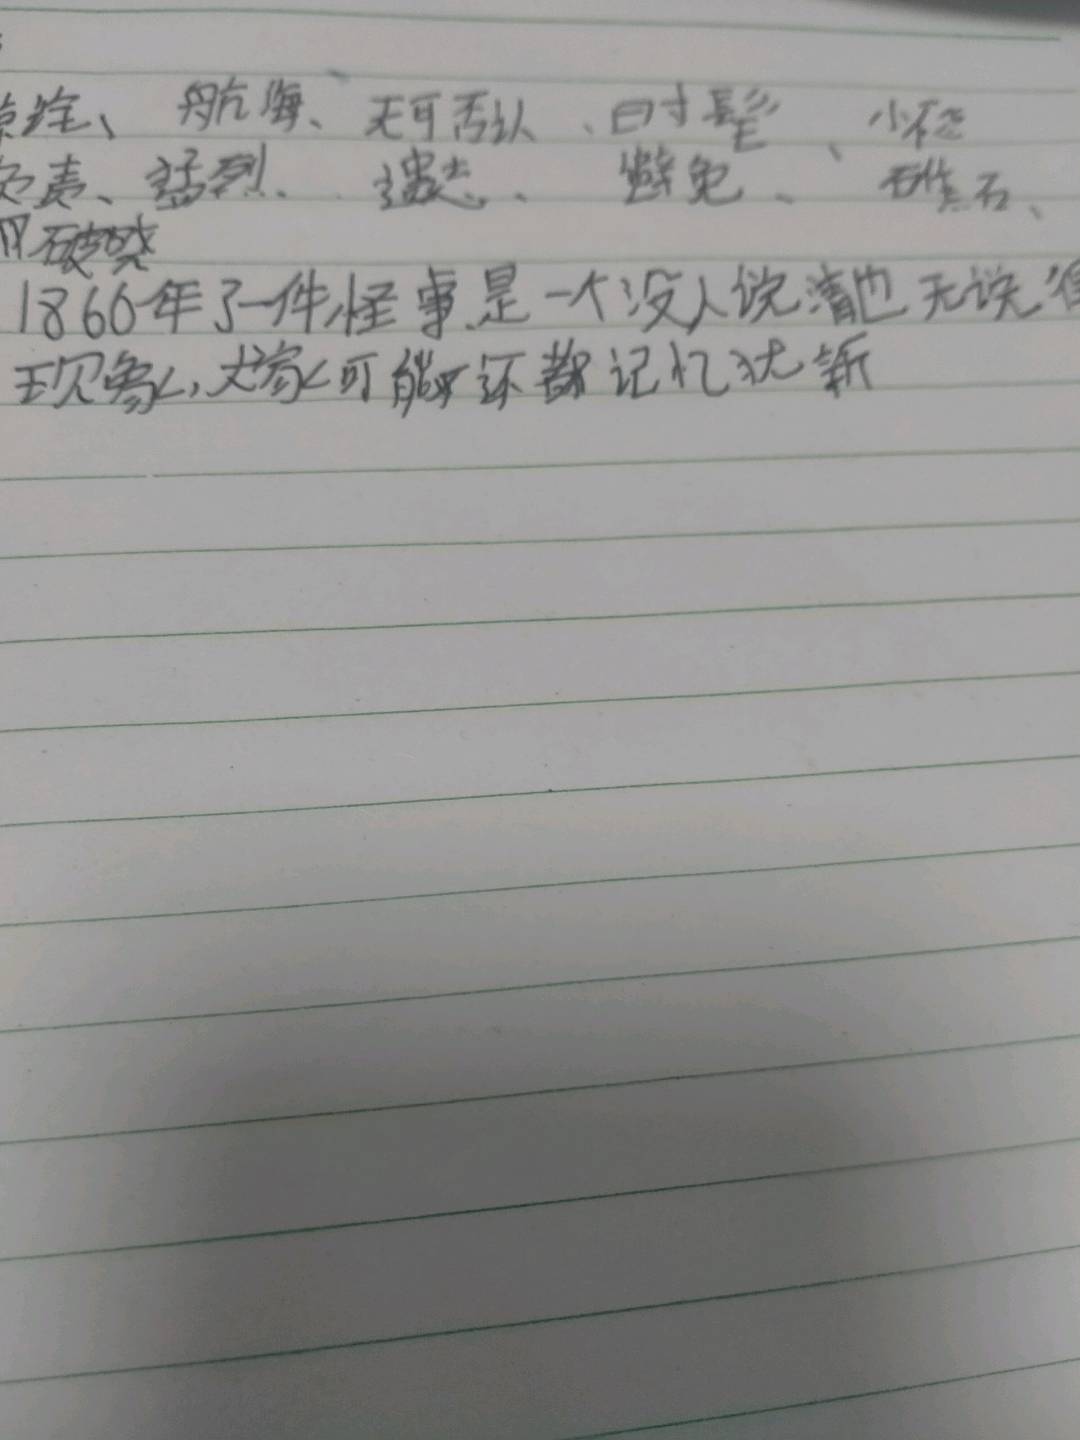 航海、无可否认、时髦、小
负责、猛烈、遗忘、避免、礁石、
破晓
1860年了一件怪事是一个没人说清也无说得
现象,大家可能还都记忆犹新